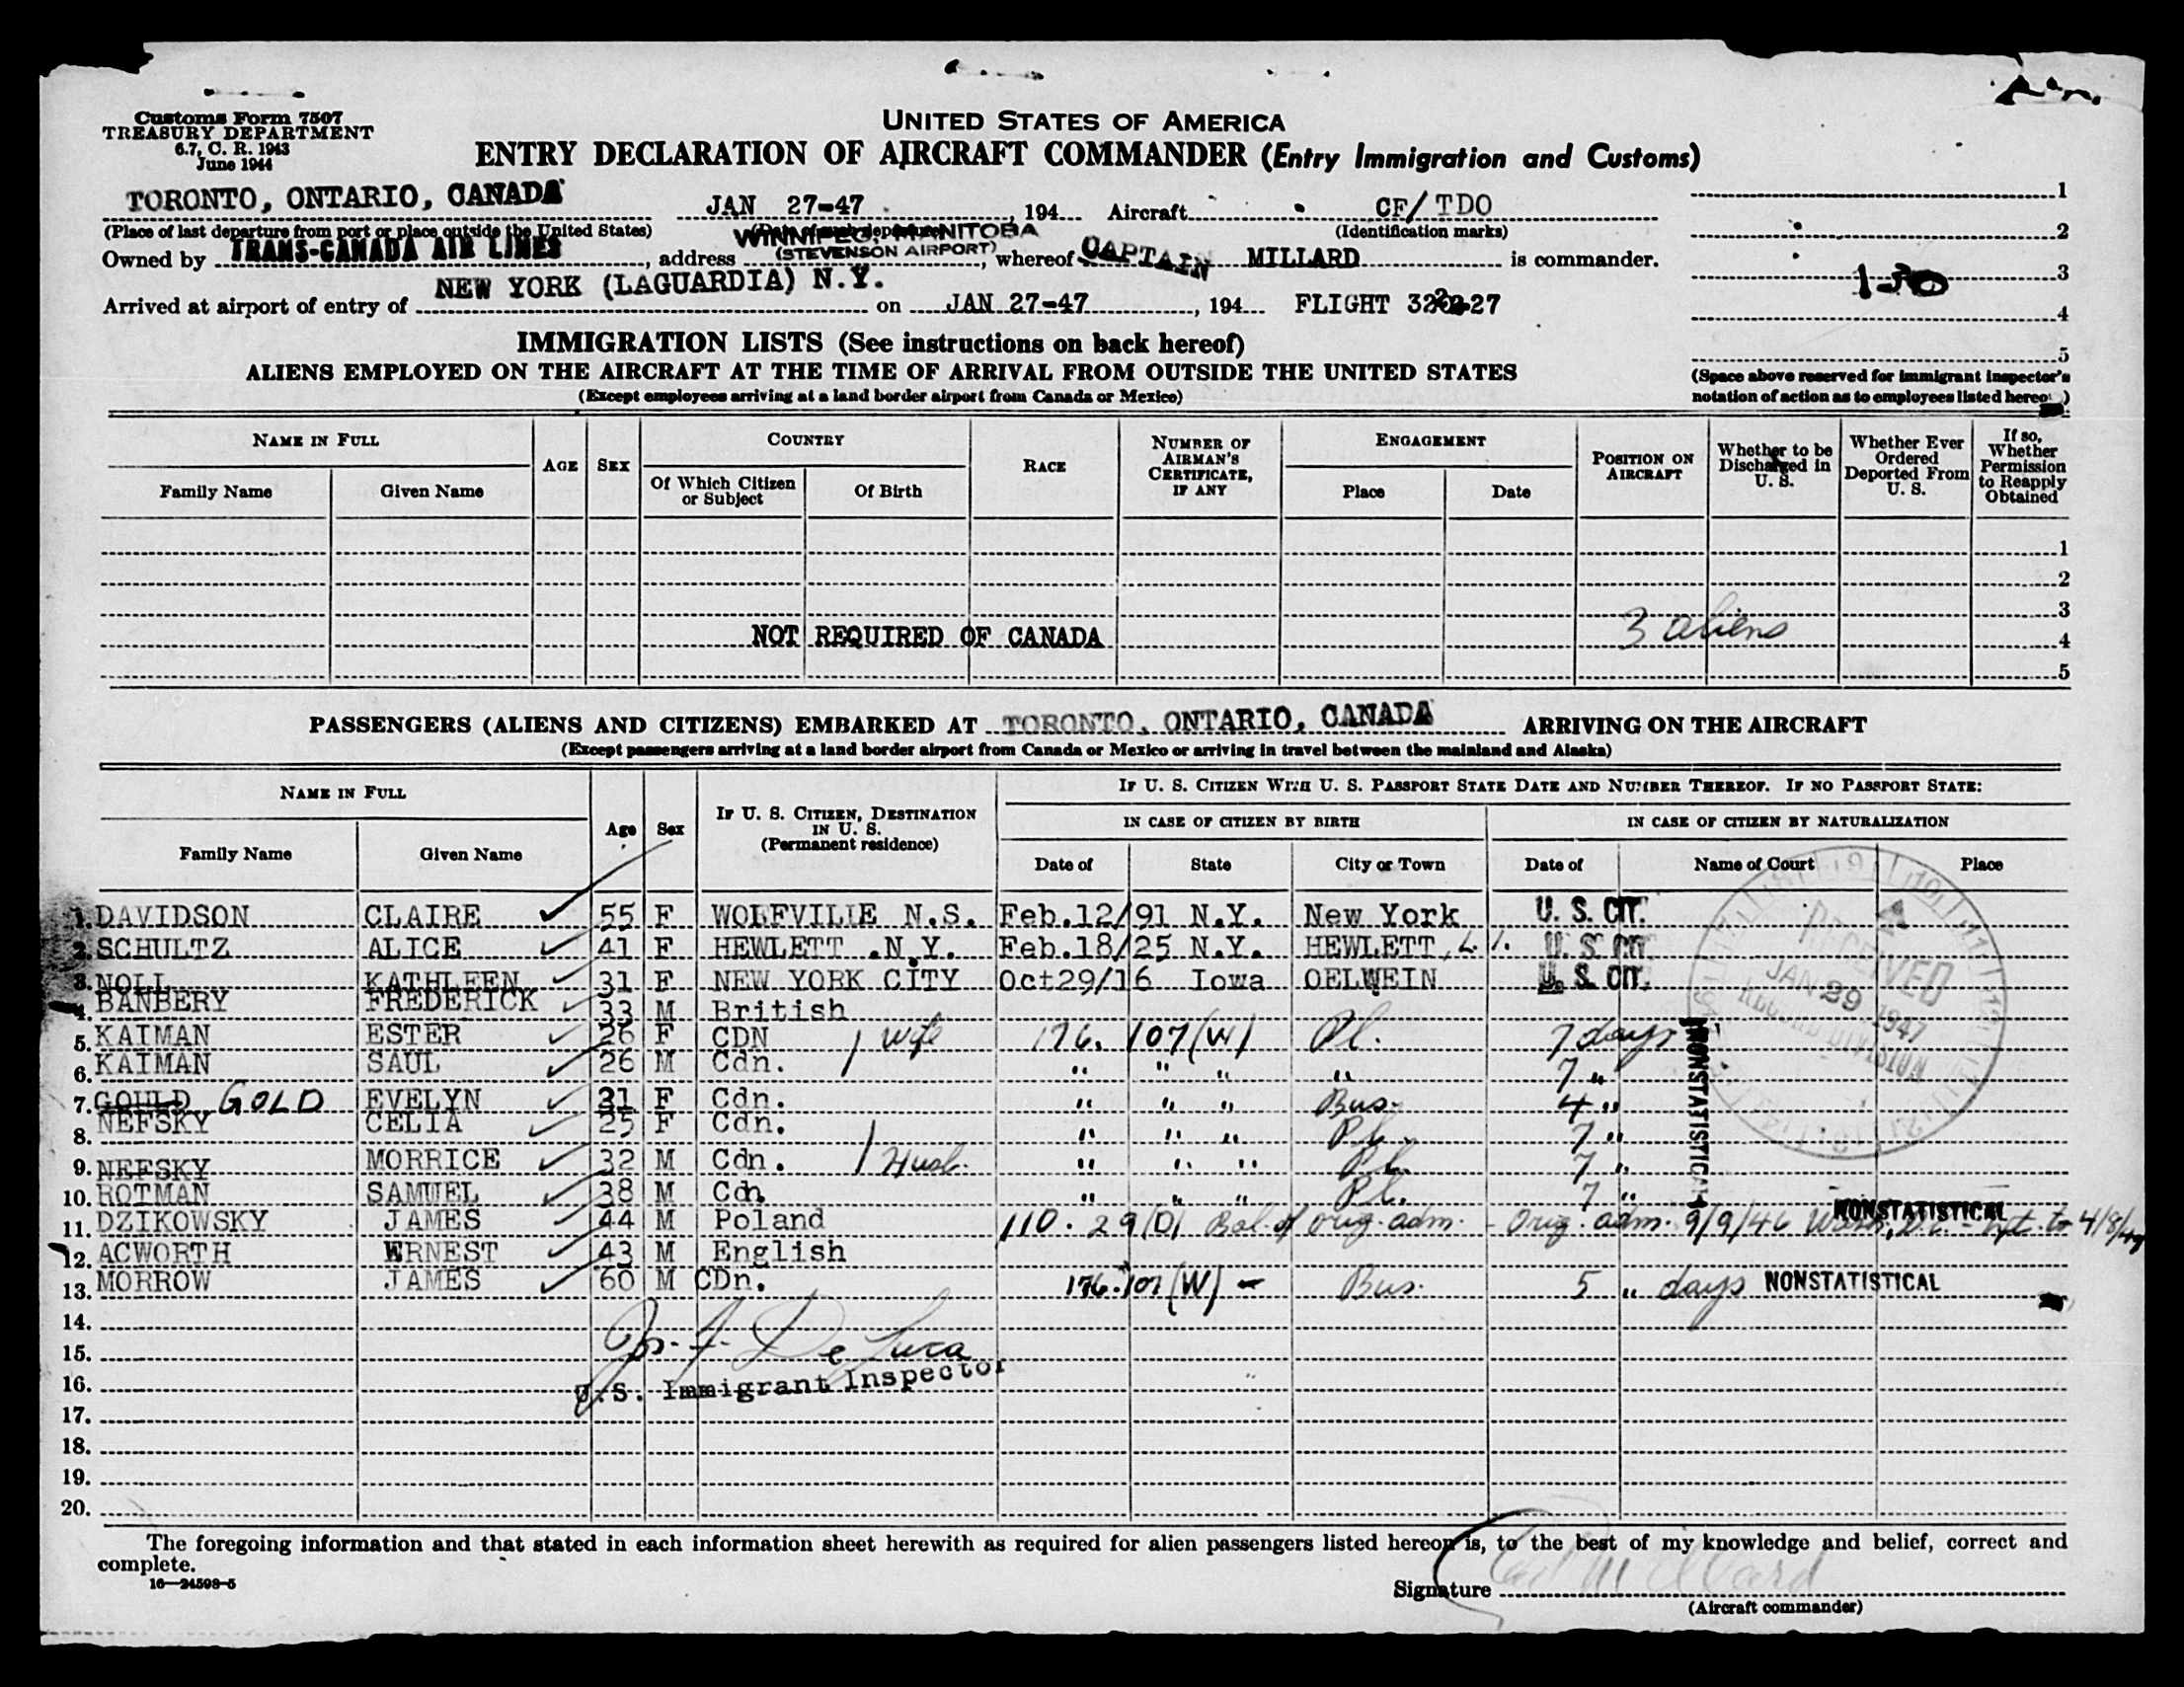 Customs Form 7507
TREASURY DEPARTMENT
6.7, C. R. 1943
June 1944
UNITED STATES OF AMERICA
ENTRY DECLARATION OF AIRCRAFT COMMANDER (Entry Immigration and Customs)
TORONTO, ONTARIO, CANADA JAN 27-47, 194 Aircraft CF/TDO
(Place of last departure from port or place outside the United States) (Date of such departure) (Identification marks)
WINNIPEG, MANITOBA
Owned by TRANS-CANADA AIR LINES, address (STEVENSON AIRPORT), whereof CAPTAIN MILLARD is commander.
Arrived at airport of entry of NEW YORK (LAGUARDIA) N.Y. on JAN 27-47, 194 FLIGHT
1
2
3
4
5
(Space above reserved for immigrant inspector's notation of action as to employees listed hereon)
IMMIGRATION LISTS (See instructions on back hereof)
ALIENS EMPLOYED ON THE AIRCRAFT AT THE TIME OF ARRIVAL FROM OUTSIDE THE UNITED STATES
(Except employees arriving at a land border airport from Canada or Mexico)
NAME IN FULL
Family Name Given Name
AGE SEX
COUNTRY
Of Which Citizen or Subject Of Birth
RACE
NUMBER OF AIRMAN'S CERTIFICATE, IF ANY
ENGAGEMENT
Place Date
POSITION ON AIRCRAFT
Whether to be Discharged in U. S.
Whether Ever Ordered Deported From U. S.
If so, Whether Permission to Reapply Obtained
1
2
3
NOT REQUIRED OF CANADA 3 aliens 4
5
PASSENGERS (ALIENS AND CITIZENS) EMBARKED AT TORONTO, ONTARIO, CANADA ARRIVING ON THE AIRCRAFT
(Except passengers arriving at a land border airport from Canada or Mexico or arriving in travel between the mainland and Alaska)
NAME IN FULL
Family Name Given Name
Age Sex
IF U. S. CITIZEN, DESTINATION IN U. S.
(Permanent residence)
IF U. S. CITIZEN WITH U. S. PASSPORT STATE DATE AND NUMBER THEREOF. IF NO PASSPORT STATE:
IN CASE OF CITIZEN BY BIRTH IN CASE OF CITIZEN BY NATURALIZATION
Date of State City or Town Date of Name of Court Place
1. DAVIDSON CLAIRE 55 F WOLFVILIE N.S. Feb.12/91 N.Y. New York U. S. CIT.
2. SCHULTZ ALICE 41 F HEWLETT .N.Y. Feb.18/25 N.Y. HEWLETT, L.I. U. S. CIT.
3. NOLL KATHLEEN 31 F NEW YORK CITY Oct29/16 Iowa OELWEIN U. S. CIT.
4. BANBERY FREDERICK 33 M British
5. KAIMAN ESTER 26 F CDN / wife 176. 107(W) Pl. 7 days
6. KAIMAN SAUL 26 M Cdn. " " " " 7 "
7. GOULD GOLD EVELYN 31 F Cdn. " " " Bus. 4 "
8. NEFSKY CELIA 25 F Cdn. " " " Pl. 7 "
9. NEFSKY MORRICE 32 M Cdn. / Husb. " " " Pl. 7 "
10. ROTMAN SAMUEL 38 M Cdn. " " " Pl. 7 "
NONSTATISTICAL
RECEIVED
JAN 29 1947
RECORD DIVISION
NONSTATISTICAL
11. DZIKOWSKY JAMES 44 M Poland 110. 29(D) Bal. of orig. adm. - Orig. adm. 9/9/46
12. ACWORTH ERNEST 43 M English
13. MORROW JAMES 60 M CDn. 176.107(W) - Bus. 5 " days NONSTATISTICAL
14.
15. Jos. F. De Luca
16. U.S. Immigrant Inspector
17.
18.
19.
20.
The foregoing information and that stated in each information sheet herewith as required for alien passengers listed hereon is, to the best of my knowledge and belief, correct and
complete.
16—24598-5
Signature Millard
(Aircraft commander)